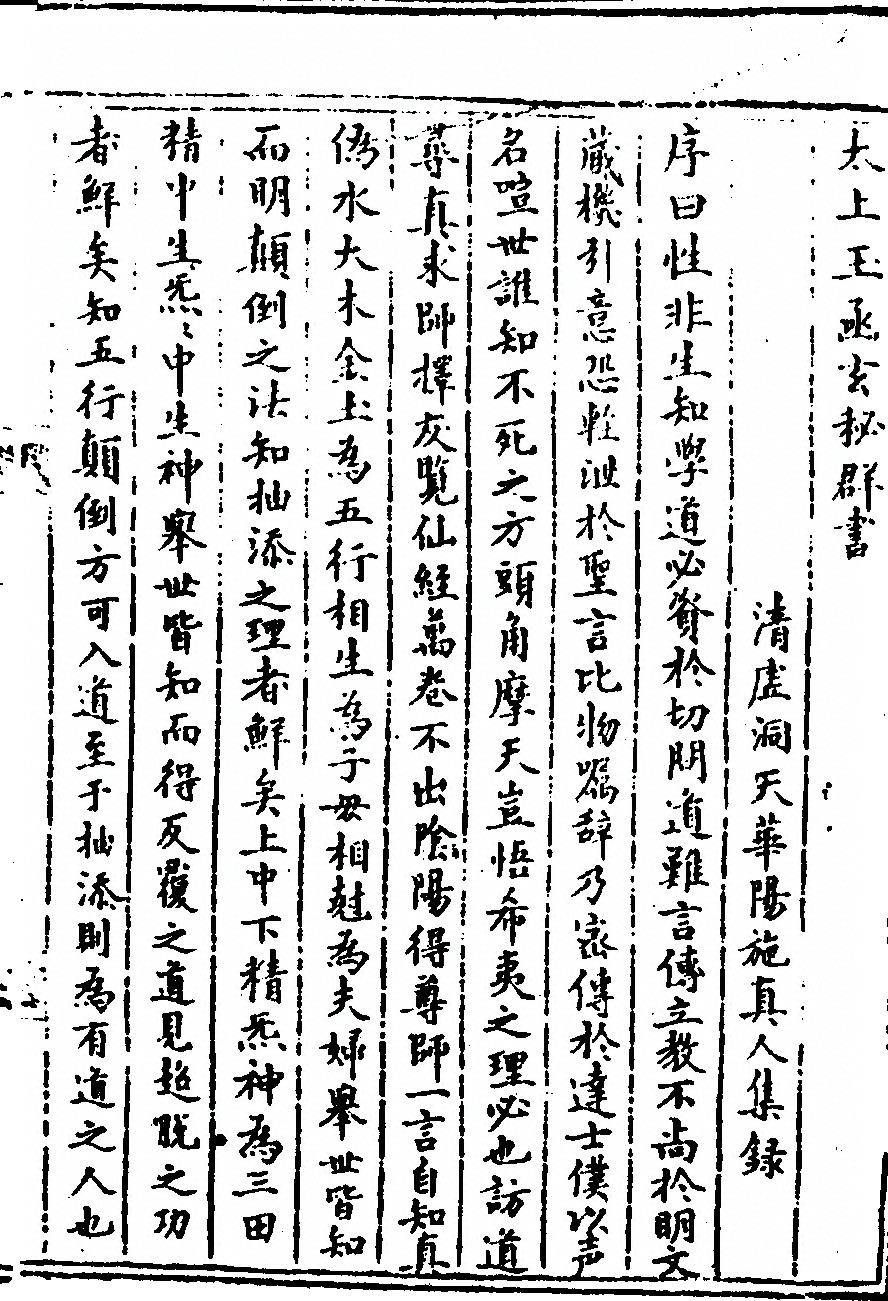 太上玉函玄秘群書
清虛洞天華陽施真人集録
序曰性非生知學道必資於切問道難言傳立教不尚於明文
蔵機引意恐軽泄於聖言比物嘱辞乃密傳於達士僕以声
名喧世誰知不死之方頭角摩天豈悟希夷之理必也訪道
慕真求師擇友覧仙經萬卷不出陰陽得尊師一言自知真
偽水火木金土為五行相生為子母相尅為夫婦舉世皆知
而明顛倒之法知抽添之理者鮮矣上中下精炁神為三田
精中生炁〻中生神舉世皆知而得反覆之道見超脱之功
者鮮矣知五行顛倒方可入道至于抽添則為有道之人也